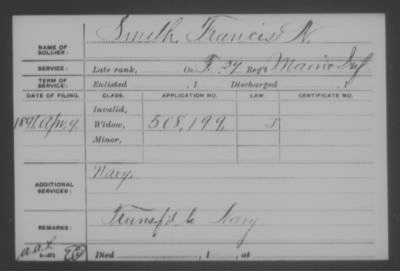 NAME OF SOLDIER: Smith, Francis N.
SERVICE: Late rank, Co. F. 27 Reg't Maine Inf
TERM OF SERVICE: Enlisted , 1 Discharged , 1
DATE OF FILING. CLASS. APPLICATION NO. LAW. CERTIFICATE NO.
Invalid,
Apr. 9. Widow, 508,199
Minor,
ADDITIONAL SERVICES: Navy.
REMARKS: Transf'd to Navy
Died , 1 , at